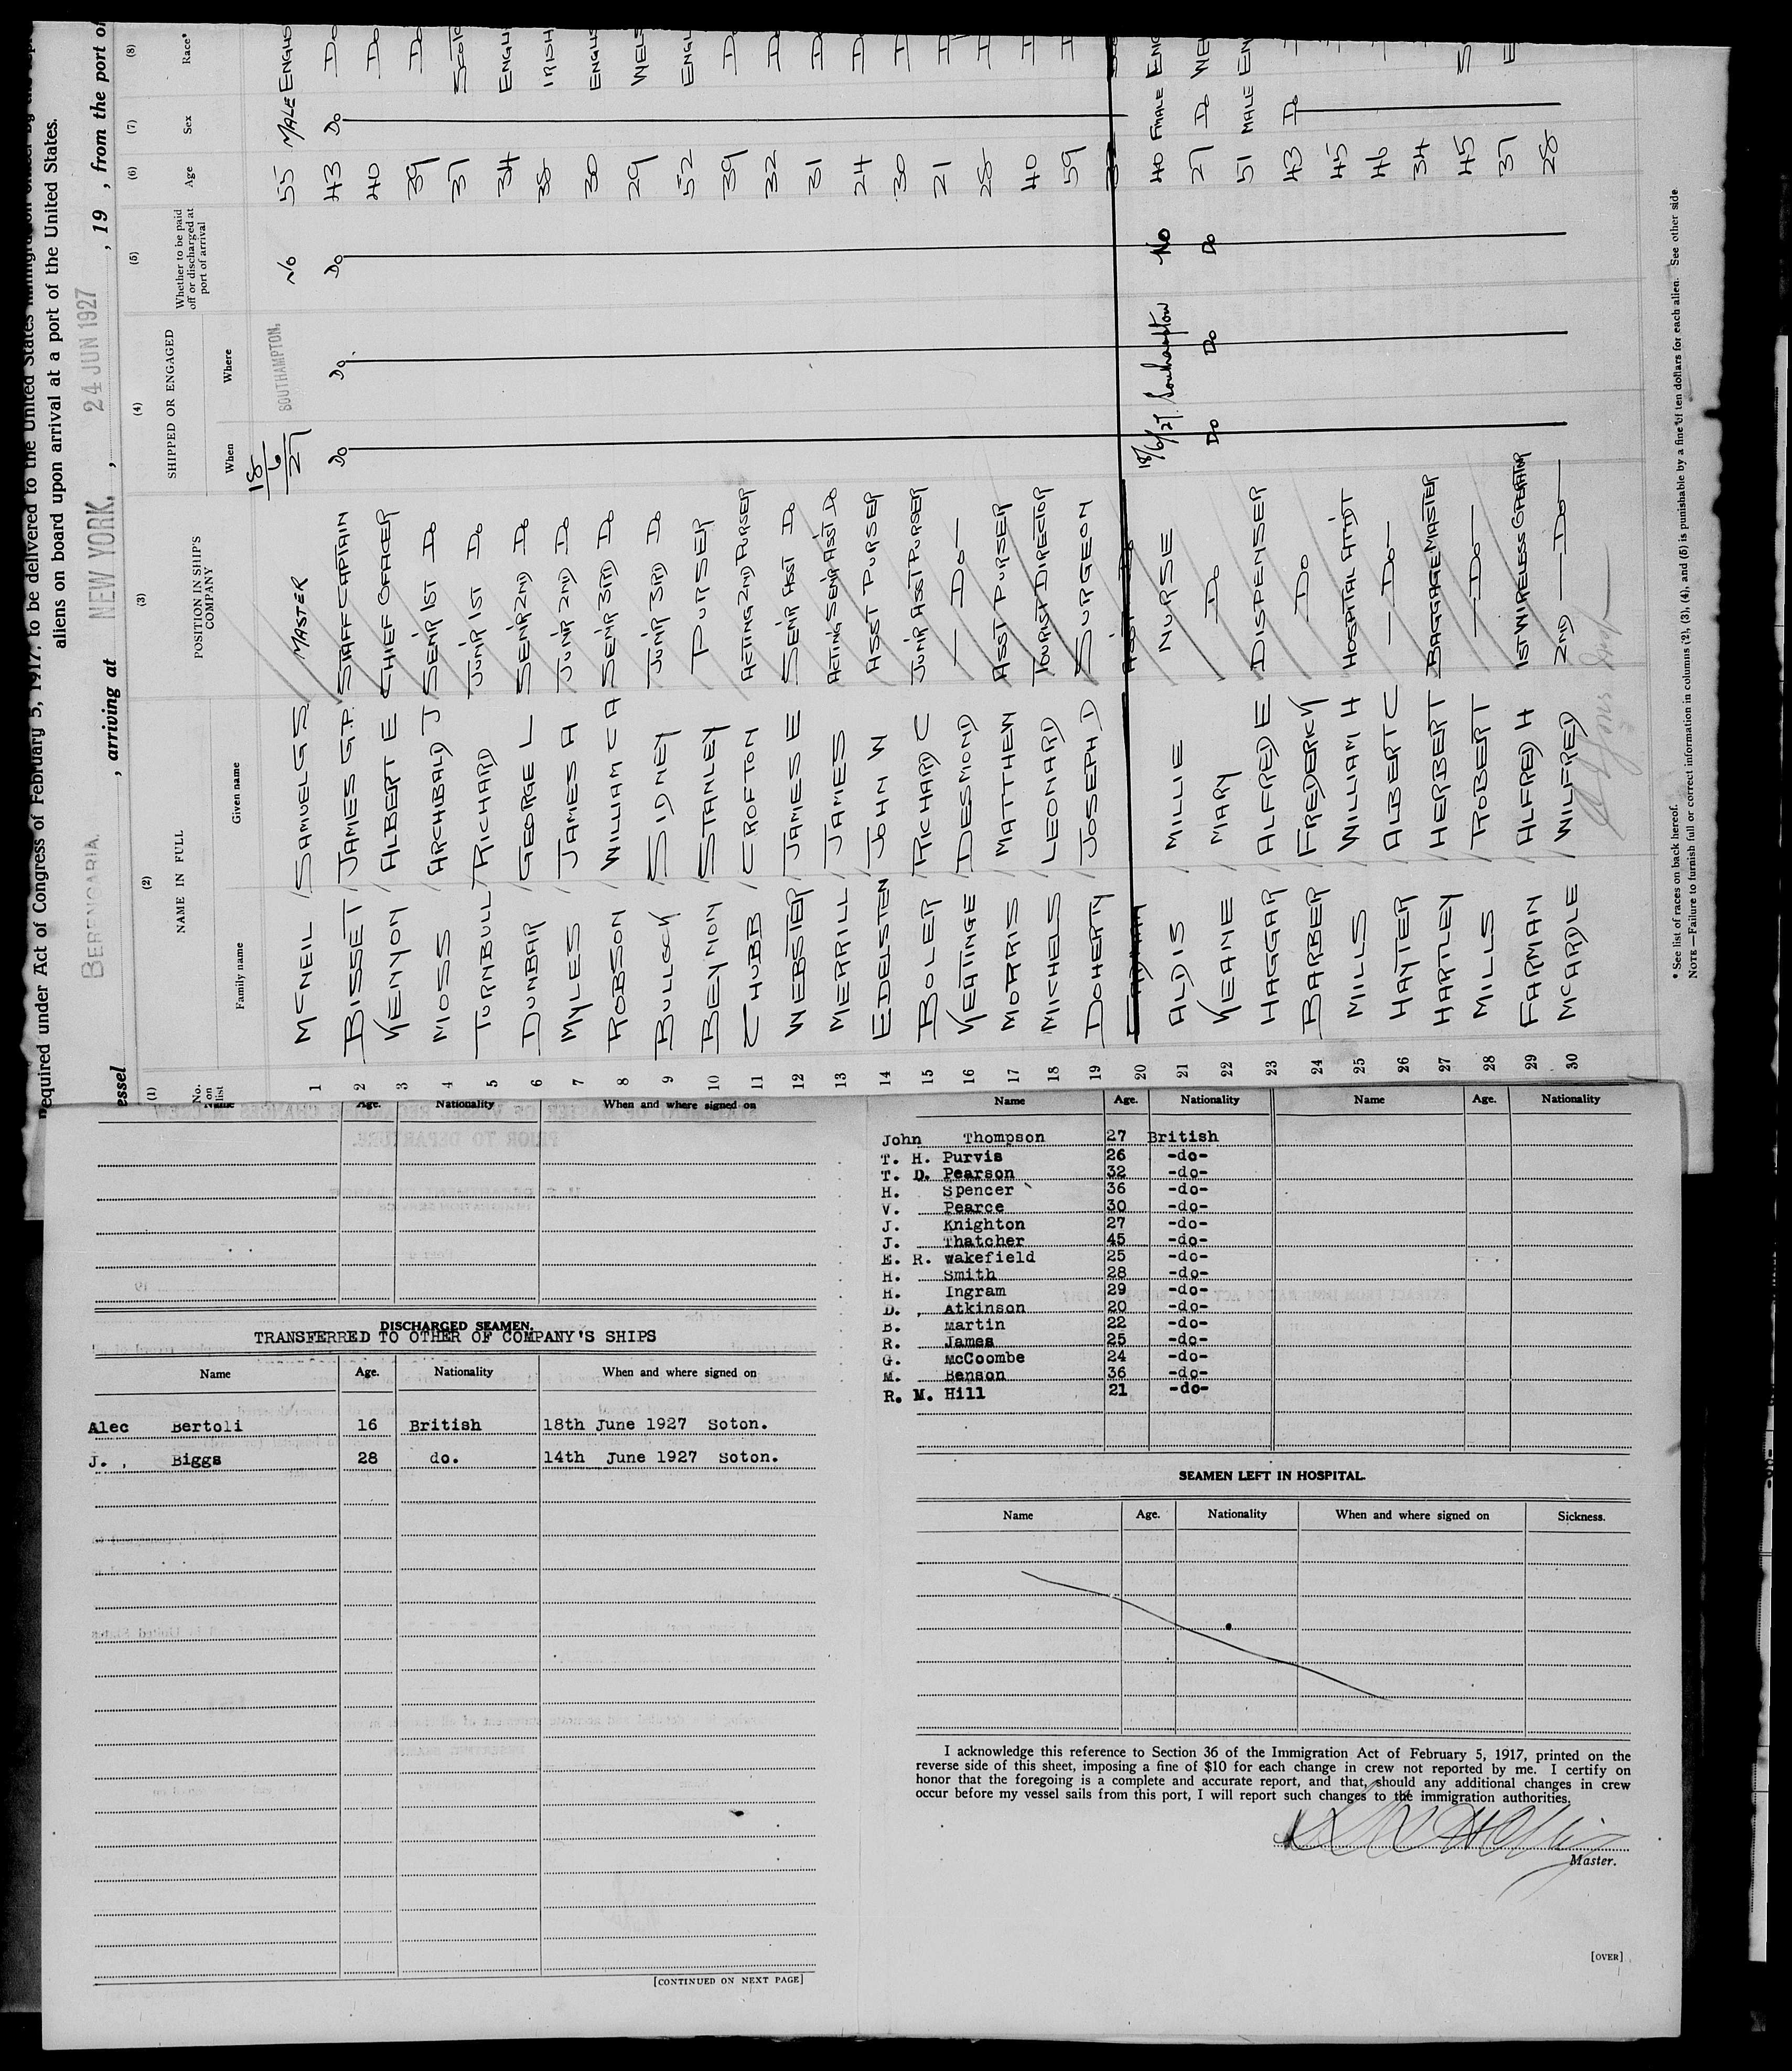 Required under Act of Congress of February 5, 1917, to be delivered to the United States
aliens on board upon arrival at a port of the United States.
essel BERENGARIA. , arriving at NEW YORK. , 24 JUN 1927 , 19 , from the port of
(1) (2) (3) (4) (5) (6) (7) (8)
No. on list NAME IN FULL POSITION IN SHIP'S COMPANY SHIPPED OR ENGAGED Whether to be paid off or discharged at port of arrival Age Sex Race*
Family name Given name When Where
1 MCNEIL SAMUEL G S MASTER 18/6/27 SOUTHAMPTON. No 55 MALE ENGLIS
2 BISSET JAMES G.P. STAFF CAPTAIN Do Do Do 43 Do Do
3 KENYON ALBERT E CHIEF OFFICER 40 Do
4 MOSS ARCHIBALD J SENIR 1ST Do 39 Do
5 TURNBULL RICHARD JUNIR 1ST Do 37
6 DUNBAR GEORGE L SENIR 2ND Do 34 ENGLI
7 MYLES JAMES A JUNIR 2ND Do 38 IRISH
8 ROBSON WILLIAM C A SENIR 3RD Do 30 ENGLIS
9 BULLOCK SIDNEY JUNIR 3RD Do 29 WELS
10 BEYNON STANLEY PURSER 52 ENGL
11 CHUBB CROFTON ACTING 2ND PURSER 39 D
12 WEBSTER JAMES E SENIR ASST Do 32 Do
13 MERRILL JAMES ACTING SENIR ASST Do 31 D
14 EDELSTEN JOHN W ASST PURSER 24 D
15 BOLER RICHARD C JUNIR ASST PURSER 30 D
16 KEATINGE DESMOND — Do — 21
17 MORRIS MATTHEW ASST PURSER 28
18 MICHELS LEONARD TOURIST DIRECTOR 40
19 DOHERTY JOSEPH D SURGEON 59
20
21 ALDIS MILLIE NURSE 18/6/27. Southampton No 40 FMALE ENG
22 KEANE MARY Do Do Do Do 27 Do WE
23 HAGGAR ALFRED E DISPENSER 51 MALE EN
24 BARBER FREDERICK Do 43 Do
25 MILLS WILLIAM H HOSPITAL ATTDT 45
26 HAYTER ALBERT C — Do — 46
27 HARTLEY HERBERT BAGGAGE MASTER 34
28 MILLS ROBERT — Do — 45 S
29 FARMAN ALFRED H 1ST WIRELESS OPERATOR 37 E
30 MCARDLE WILFRED 2ND — Do — 28
* See list of races on back hereof.
NOTE—Failure to furnish full or correct information in columns (2), (3), (4), and (5) is punishable by a fine of ten dollars for each alien. See other side
Name Age. Nationality When and where signed on
DISCHARGED SEAMEN.
TRANSFERRED TO OTHER OF COMPANY'S SHIPS
Name Age. Nationality When and where signed on
Alec Bertoli 16 British 18th June 1927 Soton.
J. Biggs 28 do. 14th June 1927 Soton.
[CONTINUED ON NEXT PAGE]
Name Age. Nationality Name Age. Nationality
John Thompson 27 British
T. H. Purvis 26 -do-
T. D. Pearson 32 -do-
H. Spencer 36 -do-
V. Pearce 30 -do-
J. Knighton 27 -do-
J. Thatcher 45 -do-
E. R. Wakefield 25 -do-
H. Smith 28 -do-
H. Ingram 29 -do-
D. Atkinson 20 -do-
B. Martin 22 -do-
R. James 25 -do-
G. McCoombe 24 -do-
M. Benson 36 -do-
R. M. Hill 21 -do-
SEAMEN LEFT IN HOSPITAL.
Name Age. Nationality When and where signed on Sickness.
I acknowledge this reference to Section 36 of the Immigration Act of February 5, 1917, printed on the
reverse side of this sheet, imposing a fine of $10 for each change in crew not reported by me. I certify on
honor that the foregoing is a complete and accurate report, and that, should any additional changes in crew
occur before my vessel sails from this port, I will report such changes to the immigration authorities.
Master.
[OVER]